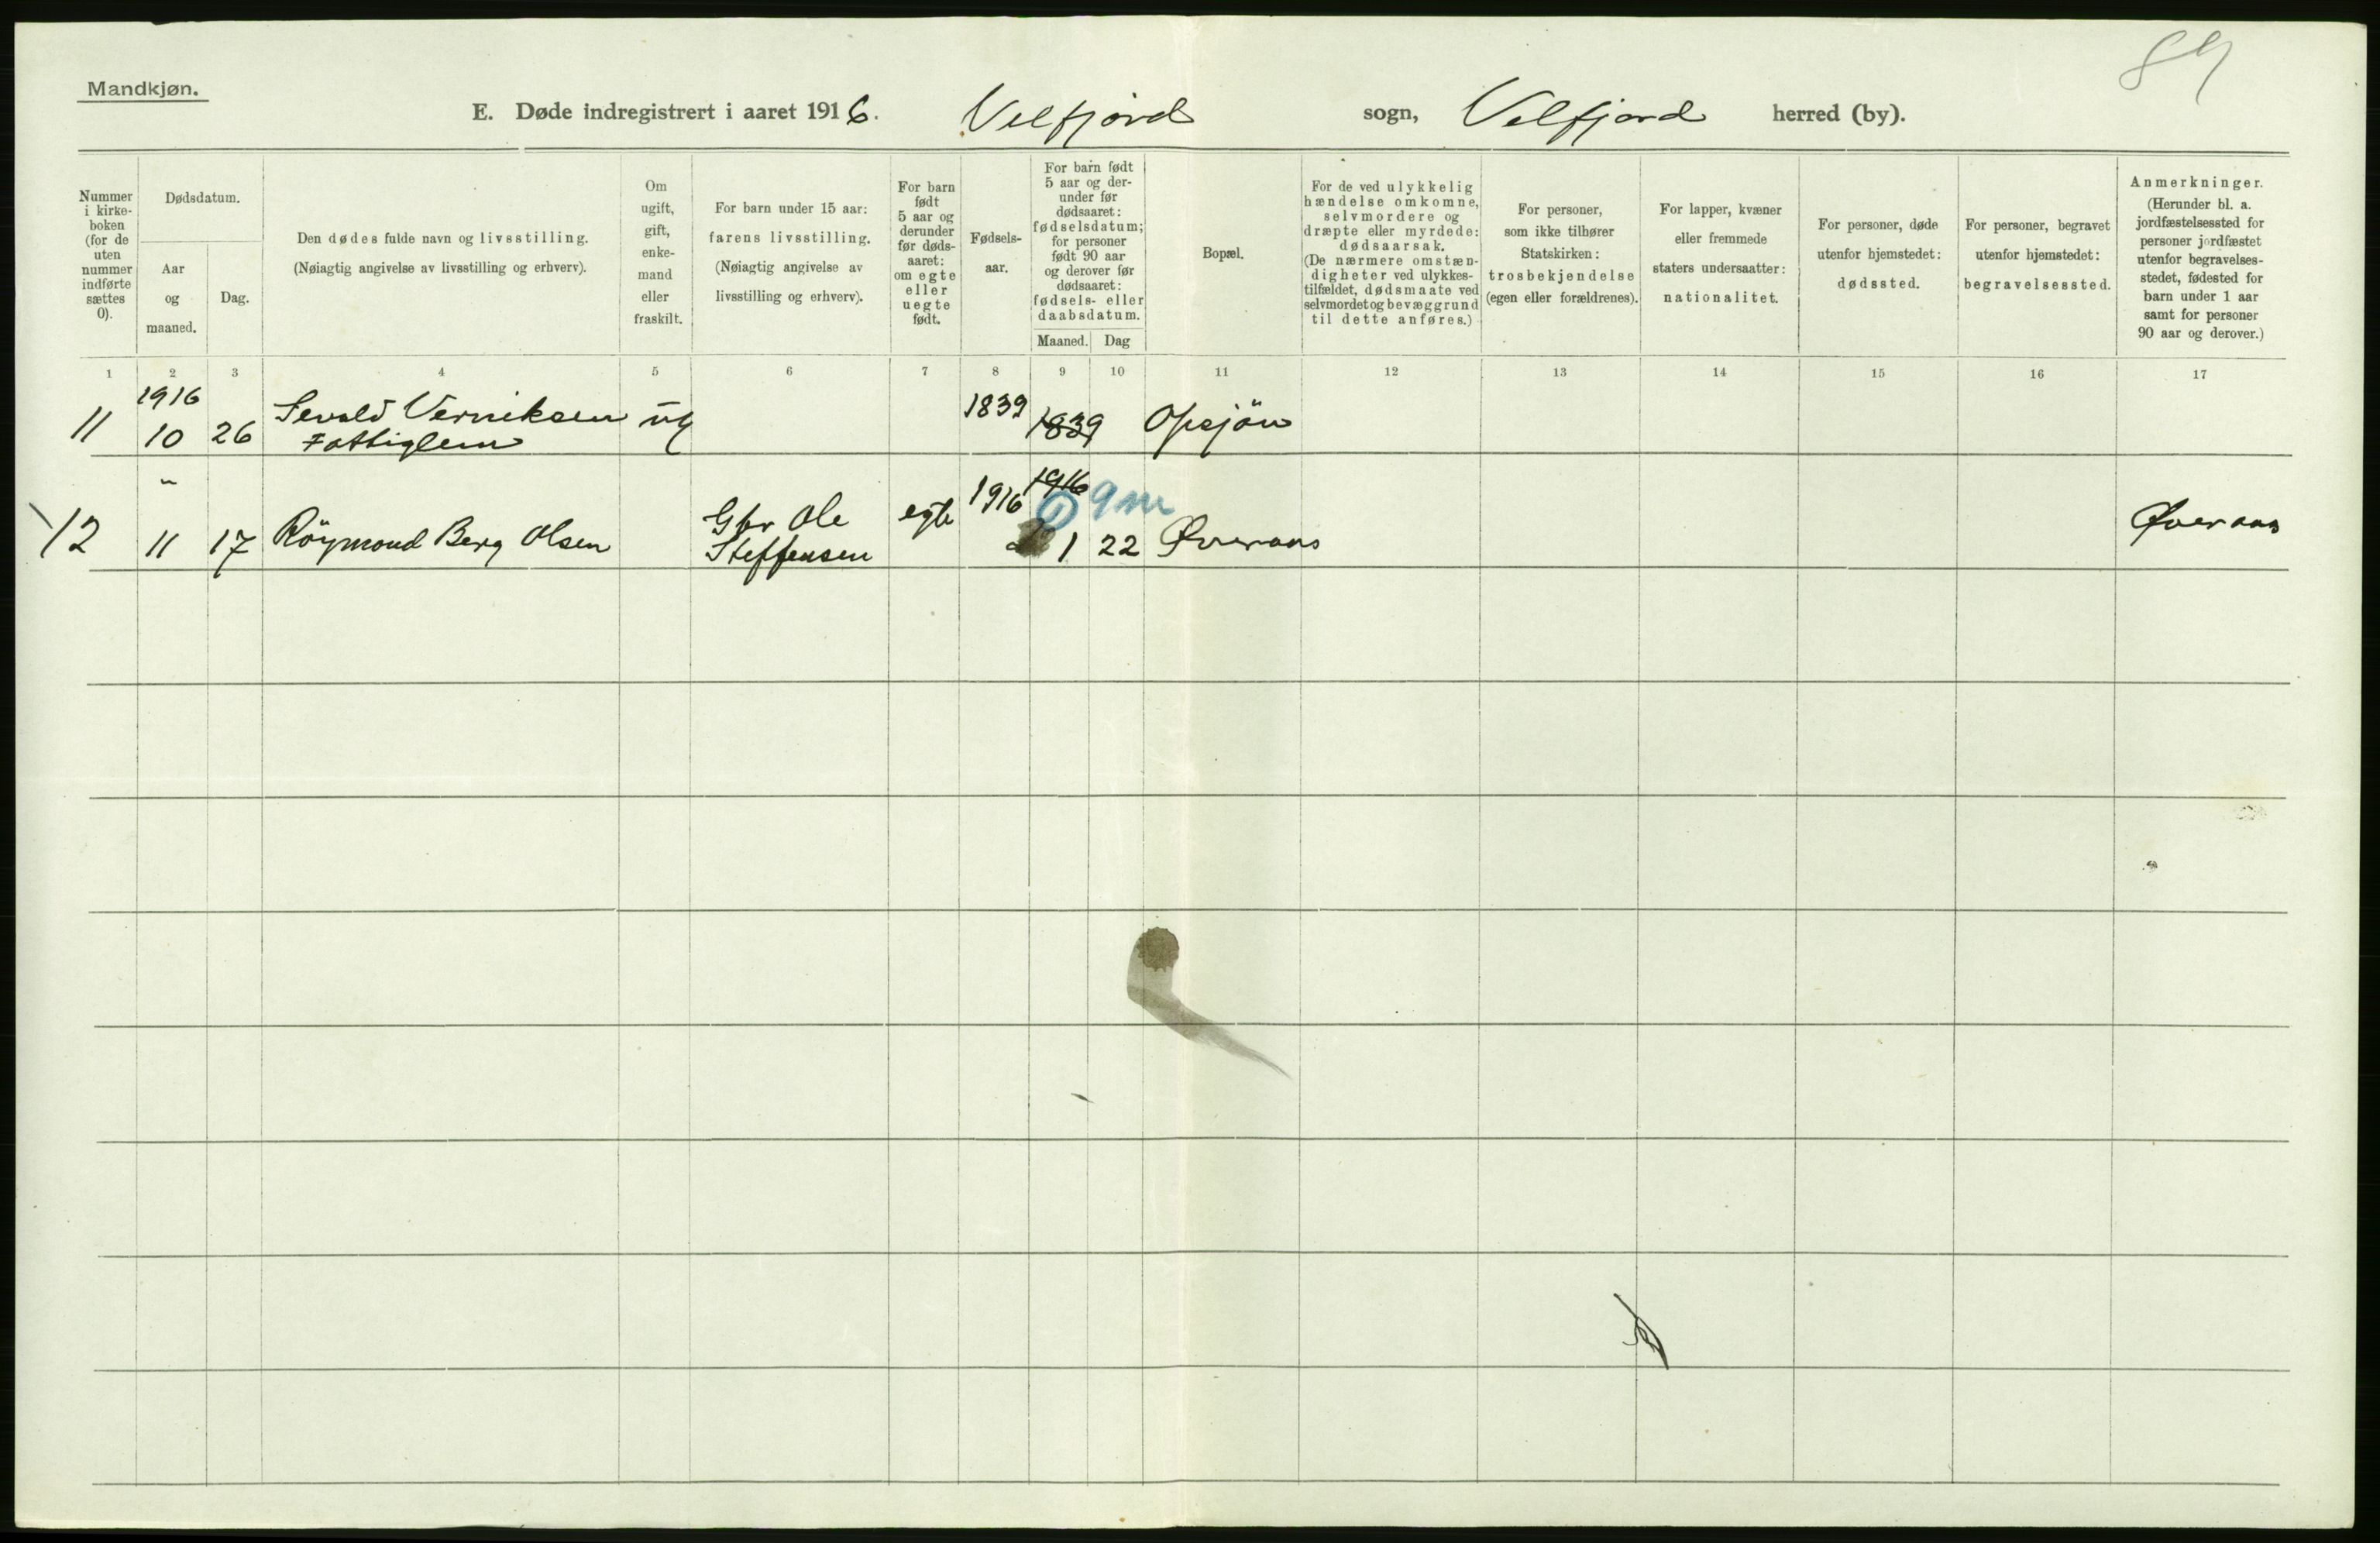 84
Mandkjøn.
E. Døde indregistrert i aaret 1916. Velfjord sogn, Velfjord herred (by).
Nummer
i kirke-
boken
(for de
uten
nummer
indførte
sættes
0).
Dødsdatum.
Aar
og
maaned.
Dag.
Den dødes fulde navn og livsstilling.
(Nøiagtig angivelse av livsstilling og erhverv).
Om
ugift,
gift,
enke-
mand
eller
fraskilt.
For barn under 15 aar:
farens livsstilling.
(Nøiagtig angivelse av
livsstilling og erhverv).
For barn
født
5 aar og
derunder
før døds-
aaret:
om egte
eller
uegte
født.
Fødsels-
aar.
For barn født
5 aar og der-
under før
dødsaaret:
fødselsdatum;
for personer
født 90 aar
og derover før
dødsaaret:
fødsels- eller
daabsdatum.
Maaned. Dag
Bopæl.
For de ved ulykkelig
hændelse omkomne,
selvmordere og
dræpte eller myrdede:
dødsaarsak.
(De nærmere omstæn-
digheter ved ulykkes-
tilfældet, dødsmaate ved
selvmordet og bevæggrund
til dette anføres.)
For personer,
som ikke tilhører
Statskirken:
trosbekjendelse
(egen eller forældrenes).
For lapper, kvæner
eller fremmede
staters undersaatter:
nationalitet.
For personer, døde
utenfor hjemstedet:
dødssted.
For personer, begravet
utenfor hjemstedet:
begravelsessted.
Anmerkninger.
(Herunder bl. a.
jordfæstelsessted for
personer jordfæstet
utenfor begravelses-
stedet, fødested for
barn under 1 aar
samt for personer
90 aar og derover.)
1 2 3 4 5 6 7 8 9 10 11 12 13 14 15 16 17
1916
11 10 26 Sevald Verniksen ug 1839 1839 Opsjön
Fattiglem
"
1916 1916 9 m
12 11 17 Röymond Berg Olsen Gbr Ole egte 1 22 Øveraas Øveraas
Steffensen